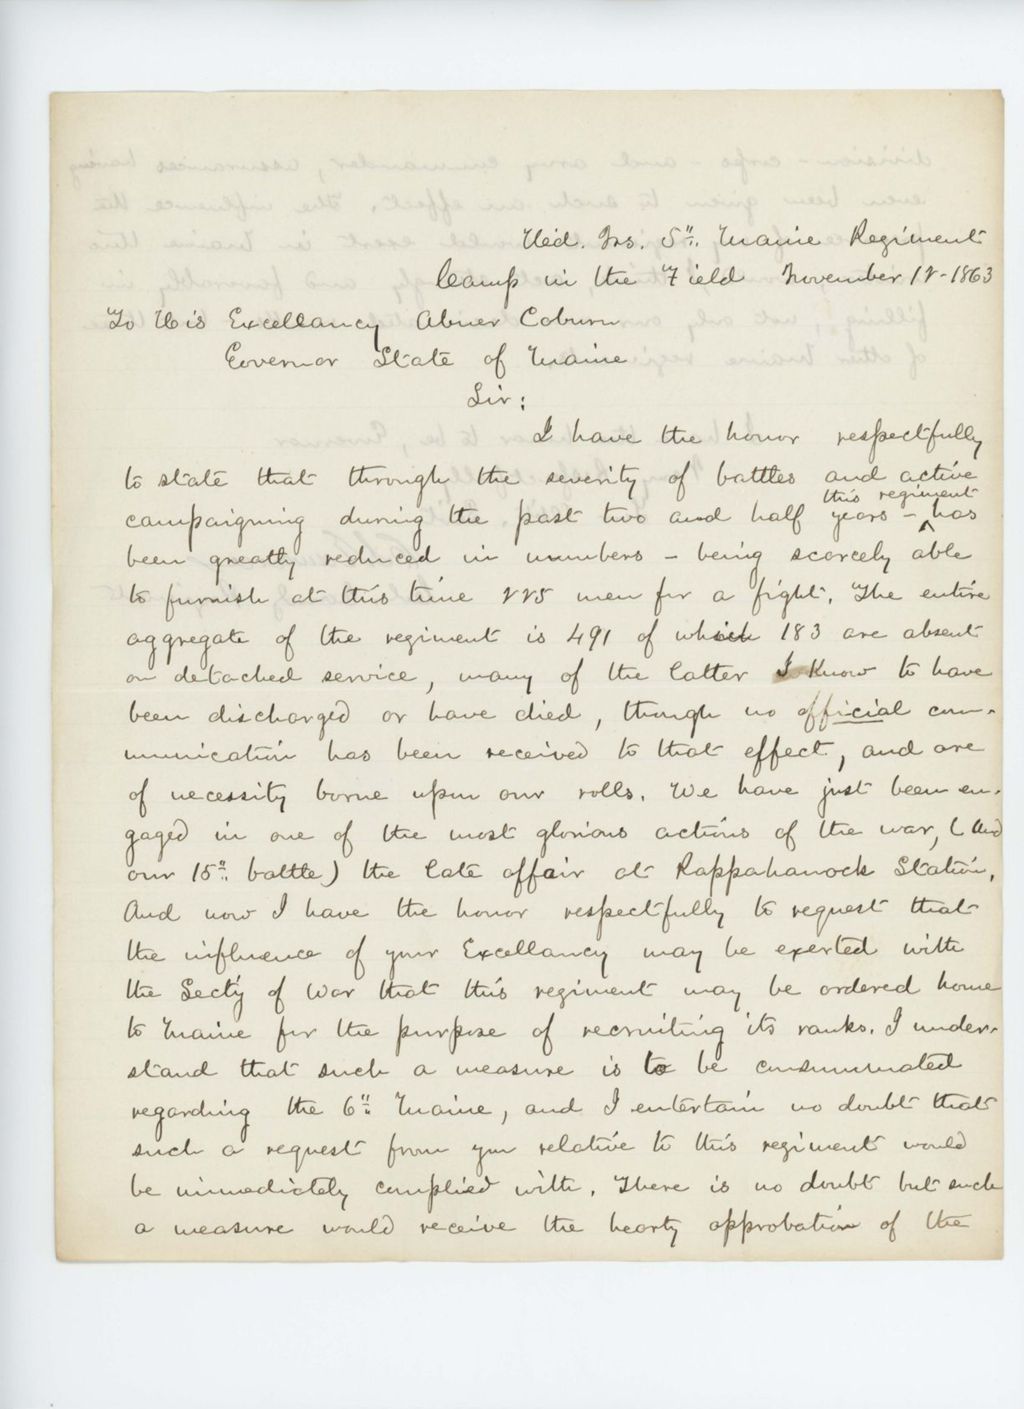 Hed. Qrs. 5". Maine Regiment
Camp in the Field November 12-1863
To His Excellancy Abner Coburn
Governor State of Maine
Sir:
I have the honor respectfully
to state that through the severity of battles and active
campaigning during the past two and half years - ^this regiment has
been greatly reduced in numbers - being scarcely able
to furnish at this time 225 men for a fight. The entire
aggregate of the regiment is 491 of which 183 are absent
on detached service, many of the latter I know to have
been discharged or have died, though no official com-
munication has been received to that effect, and are
of necessity borne upon our rolls. We have just been en-
gaged in one of the most glorious actions of the war, (and
our 15". battle) the late affair at Rappahanock Station.
And now I have the honor respectfully to request that
the influence of your Excellancy may be exerted with
the Sect'y of War that this regiment may be ordered home
to Maine for the purpose of recruiting its ranks. I under-
stand that such a measure is to be consummated
regarding the 6". Maine, and I entertain no doubt that
such a request from you relative to this regiment would
be immediately complied with. There is no doubt but such
a measure would receive the hearty approbation of the